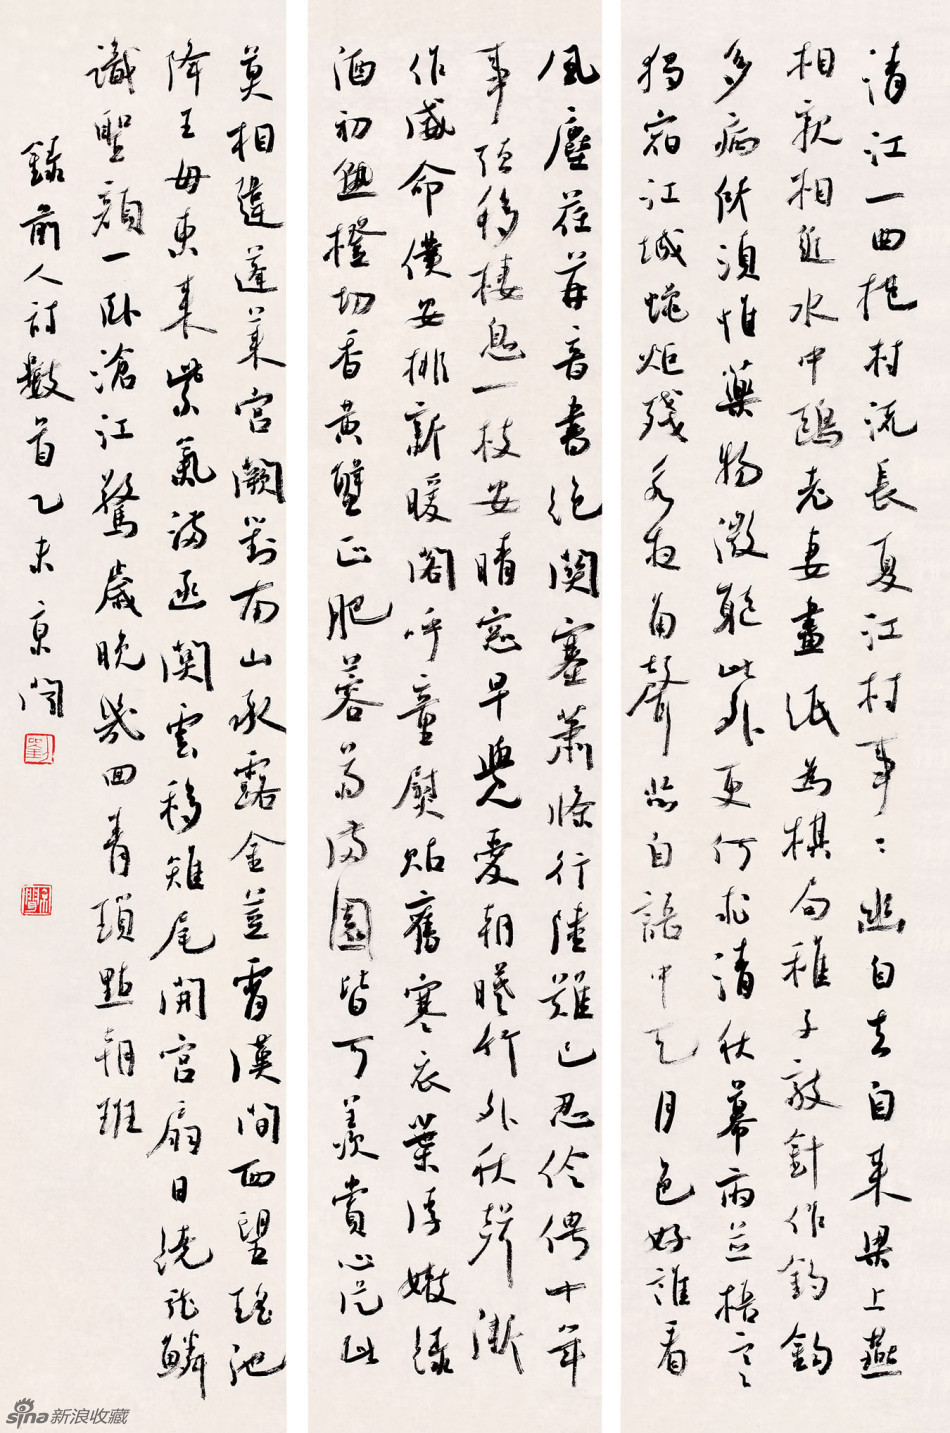 清江一曲抱村流長夏江村事〻幽自去自来梁上燕
相親相近水中鷗老妻畫紙为棋局稚子敲針作釣鈎
多病所須惟藥物微軀此外更何求清秋幕府井梧寒
獨宿江城蠟炬殘永夜角聲悲自語中天月色好誰看
風塵荏苒音書絕關塞蕭條行陸難已忍伶俜十年
事强移棲息一枝安晴窗早覺愛朝曦竹外秋聲漸
作威命僕安排新暖閣呼童熨貼舊寒衣葉浮嫩綠
酒初熟橙切香黄蟹正肥蓉菊滿園皆可羨賞心從此
莫相違蓬莱宫闕對南山承露金莖霄漢間西望瑶池
降王母東来紫氣滿函關雲移雉尾開宫扇日繞龍鱗
識聖顔一卧滄江驚歲晚幾回青瑣點朝班
錄前人詩數首乙未京
sina新浪收藏